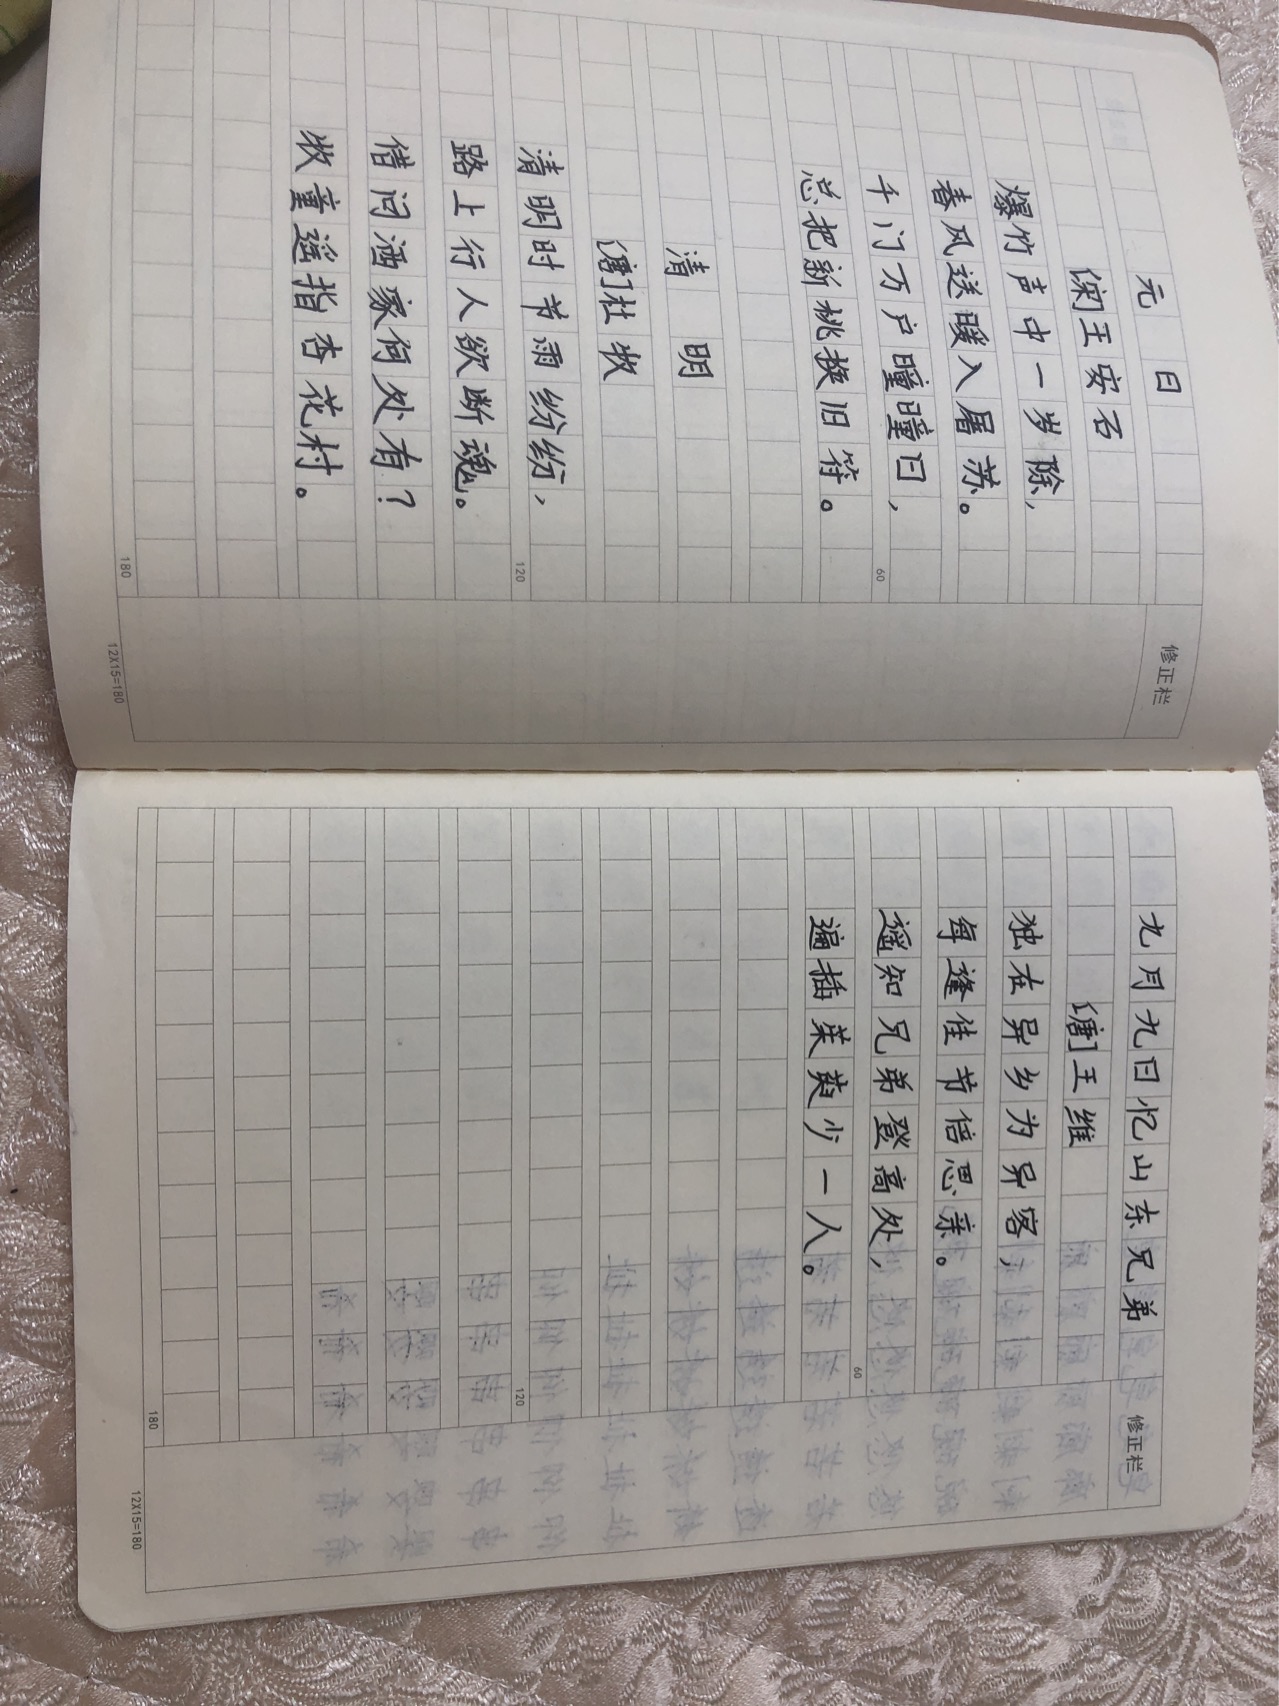 元 日
[宋]王安石
爆竹声中一岁除,
春风送暖入屠苏。
千门万户瞳瞳日,
总把新桃换旧符。
清 明
[唐]杜牧
清明时节雨纷纷,
路上行人欲断魂。
借问酒家何处有?
牧童遥指杏花村。
60
120
180
修正栏
12X15=180
九月九日忆山东兄弟
[唐]王维
独在异乡为异客,
每逢佳节倍思亲。
遥知兄弟登高处,
遍插茱萸少一人。
60
120
180
修正栏
12X15=180